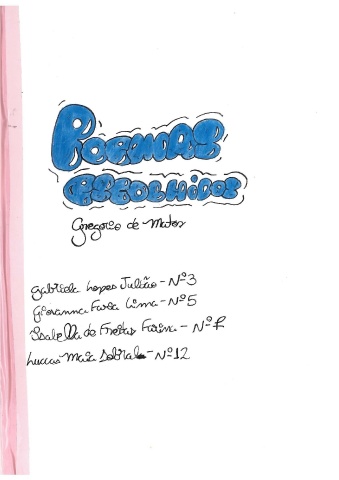 Poemas
Escolhidos
Gregório de Matos
Gabriela Lopes Julião - Nº3
Giovanna Faria Lima - Nº5
Isabella de Freitas Farina - Nº
Luccas Maia Sobral - Nº12